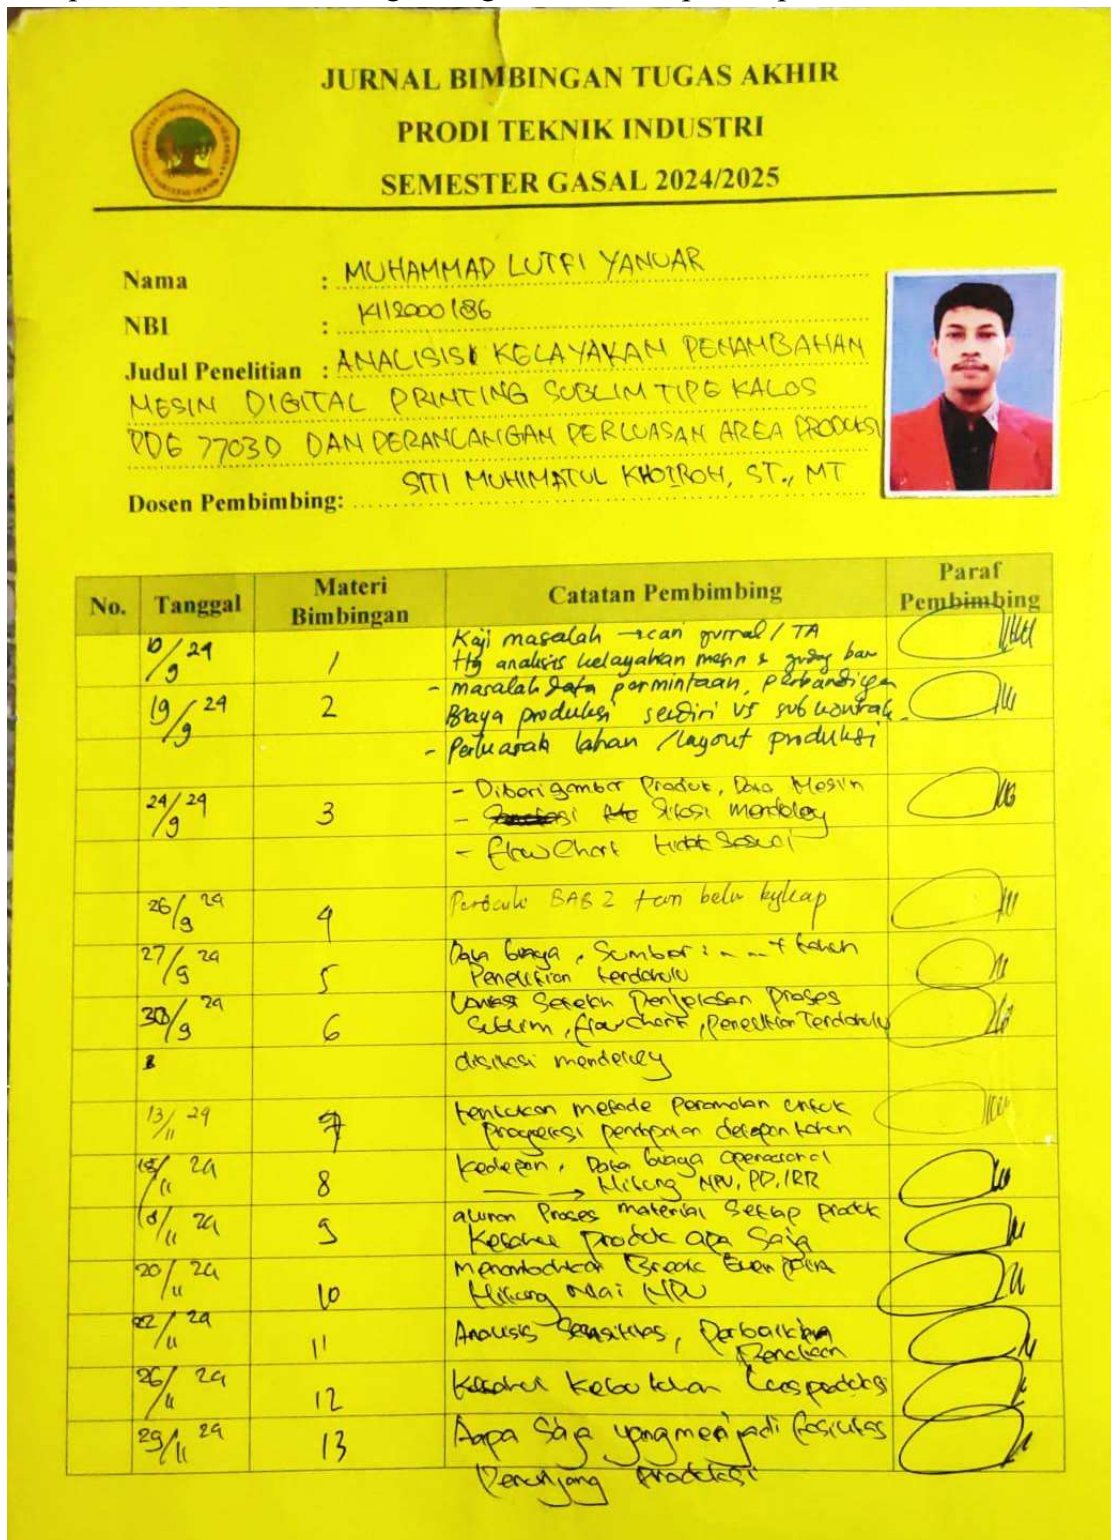 JURNAL BIMBINGAN TUGAS AKHIR
PRODI TEKNIK INDUSTRI
SEMESTER GASAL 2024/2025
Nama : MUHAMMAD LUTFI YANUAR
NBI : 1412000186
Judul Penelitian : ANALISIS KELAYAKAN PENAMBAHAN
MESIN DIGITAL PRINTING SUBLIM TIPE KALOS
PDG 7703D DAN PERANCANGAN PERLUASAN AREA PRODUKSI
Dosen Pembimbing: SITI MUHIMATUL KHOIROH, ST., MT
No. Tanggal Materi Bimbingan Catatan Pembimbing Paraf Pembimbing
10/9 24 1 Kaji masalah → cari jurnal / TA
ttg analisis kelayakan mesin & gudang bar
19/9 24 2 - masalah data permintaan, perbandingan
Biaya produksi sendiri vs sub kontrak
- Perluasan lahan / layout produksi
24/9 24 3 - Diberi gambar Produk, Data Mesin
- Sitasi mendeley
- flow Chart tidak Sesuai
26/9 24 4 BAB 2
27/9 24 5 Data biaya, Sumber : + tahun
Penelitian terdahulu
30/9 24 6 Lokasi Setelah Penjelasan Proses
Sublim, flow chart, Penelitian Terdahulu
disitasi mendeley
13/11 24 7 tentukan metode Peramalan untuk
pendapatan delapan tahun
24 8 kedepan, Data biaya operasional
→ Hitung NPV, PP, IRR
18/11 24 9 aluran Proses material Setiap produk
produk apa Saja
20/11 24 10 menambahkan Break Even Point
Hitung Nilai NPV
22/11 24 11 Analisis Sensitivitas, Perbaikan
Penulisan
26/11 24 12 Kebutuhan Luas produksi
29/11 24 13 Aapa Saja yang menjadi fasilitas
Penunjang Produksi